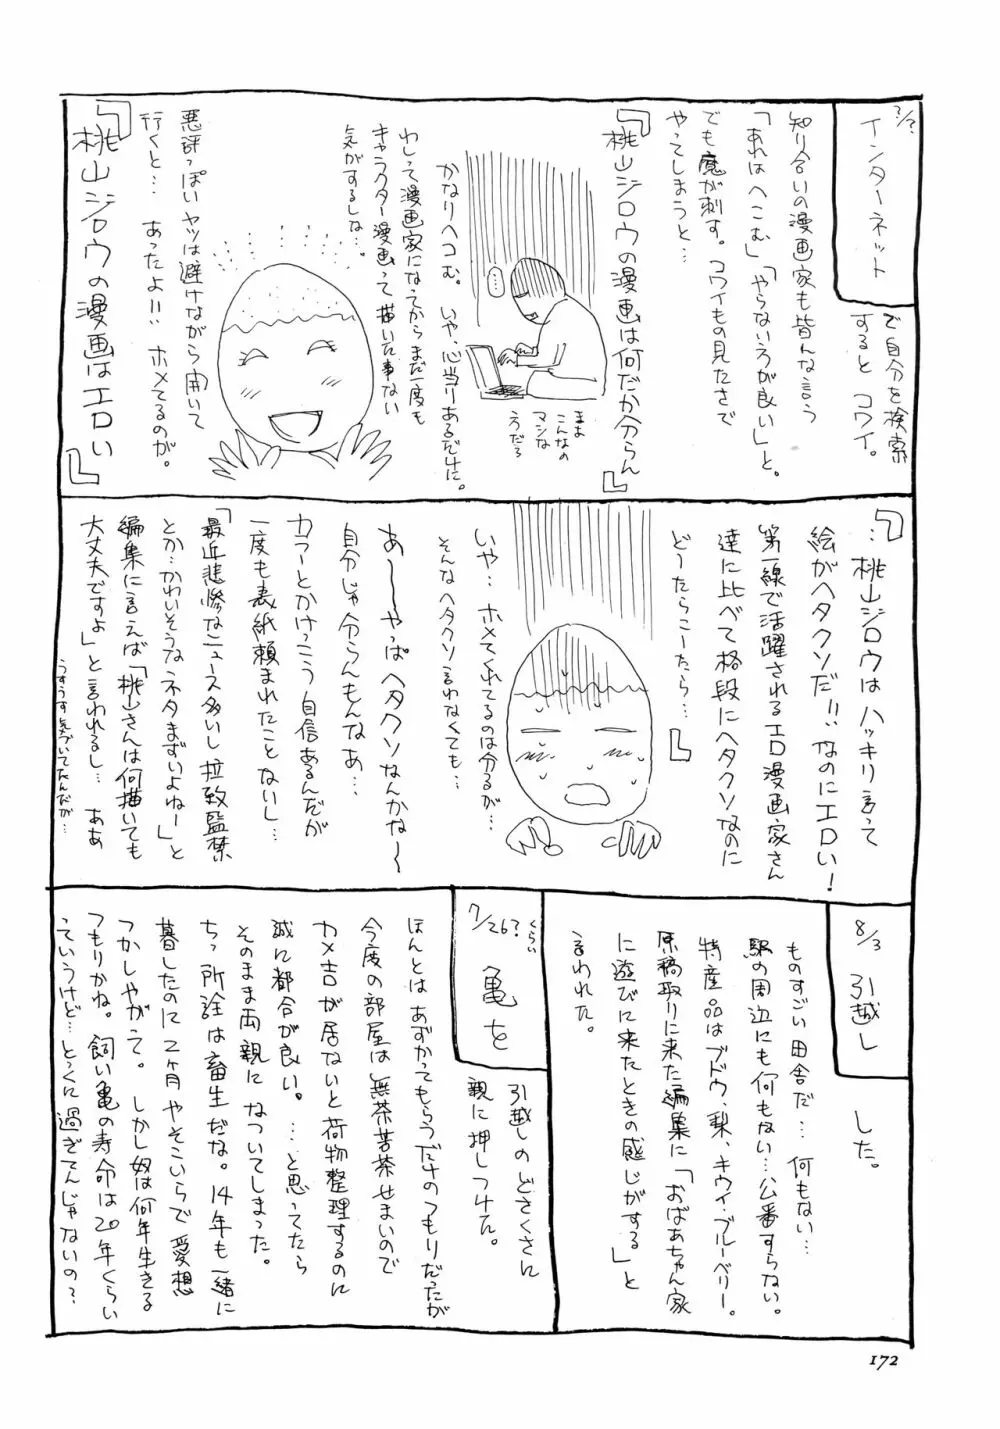 ?/?
インターネット
で自分を検索
すると コワイ。
知り合いの漫画家も皆んな言う
「あれはへこむ」「やらないろが良い」と。
でも魔が刺す。コワイもの見たさで
やってしまうと…
『桃山ジロウの漫画は何だか分らん』
……
まま
こんなの
マシな
うだろ
かなりヘコむ。いや、心当りあるだけに。
わしって漫画家になってからまだ一度も
キャラクター漫画って描いた事ない
気がするしな…
悪評っぽいヤツは避けながら開いて
行くと… あったよ!! ホメてるのが。
『桃山ジロウの漫画はエロい』
『…桃山ジロウはハッキリ言って
絵がヘタクソだ!!なのにエロい!
第一線で活躍されるエロ漫画家さん
達に比べて格段にヘタクソなのに
どーたらこーたら…』
いや… ホメてくれてるのは分るが…
そんなヘタクソ言わなくても…
あ〜〜やっぱヘタクソなんかな〜
自分じゃ分らんもんなあ…
カラーとかけっこう自信あるんだが
一度も表紙頼まれたことないし…
「最近悲惨なニュース多いし拉致監禁
とか…かわいそうなネタまずいよねー」と
編集に言えば「桃山さんは何描いても
大丈夫ですよ」と言われるし… ああ
うすうす気づいてたんだが…
8/3 引越し
した。
ものすごい田舎だ… 何もない…
駅の周辺にも何もない…公番すらない。
特産品はブドウ、梨、キウイ・ブルーベリー。
原稿取りに来た編集に「おばあちゃん家
に遊びに来たときの感じがする」と
言われた。
7/26?くらい
亀を
引越しのどさくさに
親に押しつけた。
ほんとは あずかってもらうだけのつもりだったが
今度の部屋は無茶苦茶せまいので
カメ吉が居ないと荷物整理するのに
誠に都合が良い。…と思ってたら
そのまま両親に なついてしまった。
ちっ所詮は畜生だな。14年も一緒に
暮したのに2ヶ月やそこいらで愛想
つかしやがって。しかし奴は何年生きる
つもりかね。飼い亀の寿命は20年くらい
っていうけど…とっくに過ぎてんじゃないの?
172